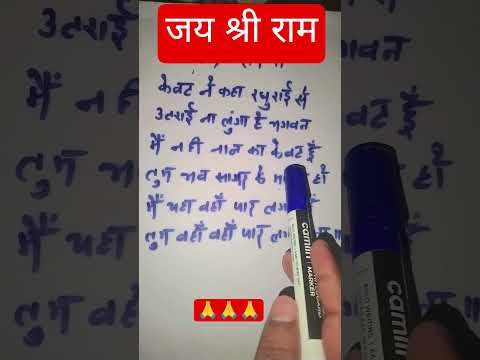 जय श्री राम
केवट ने कहा रघुराई से
उतराई ना लुंगा हे भगवन
मैं नदी नाव का केवट हूँ
तुम भव सागर के हो
मैं यहा वहाँ पार
तुम वहाँ वहाँ पार
camlin
MARKER
camlin